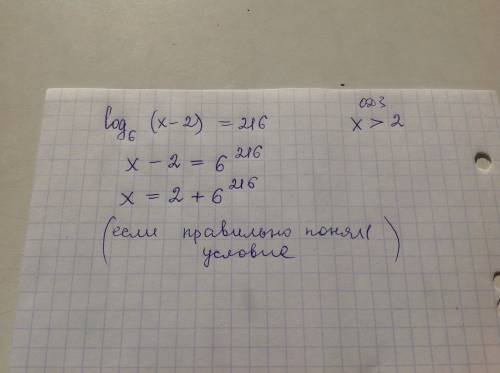 log₆ (x-2) = 216
ОДЗ
x > 2
x - 2 = 6²¹⁶
x = 2 + 6²¹⁶
(если правильно понял
условие)